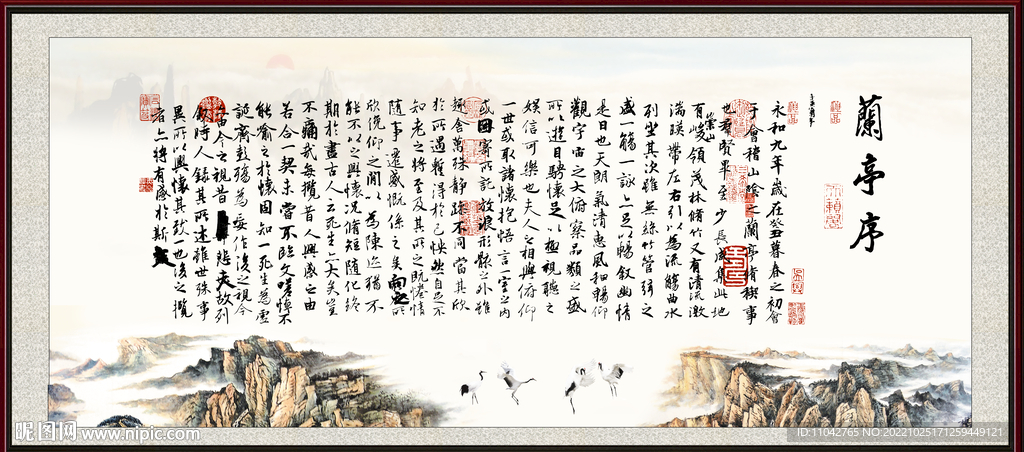 蘭亭序
永和九年歲在癸丑暮春之初會
于會稽山陰之蘭亭脩稧事
也羣賢畢至少長咸集此地
有崇山峻領茂林脩竹又有清流激
湍暎帶左右引以為流觴曲水
列坐其次雖無絲竹管弦之
盛一觴一詠亦足以暢敘幽情
是日也天朗氣清惠風和暢仰
觀宇宙之大俯察品類之盛
所以遊目騁懷足以極視聽之
娛信可樂也夫人之相與俯仰
一世或取諸懷抱悟言一室之內
或因寄所託放浪形骸之外雖
趣舍萬殊靜躁不同當其欣
於所遇暫得於己怏然自足不
知老之將至及其所之既惓情
隨事遷感慨係之矣向之所
欣俛仰之閒以為陳迹猶不
能不以之興懷況脩短隨化終
期於盡古人云死生亦大矣豈
不痛哉每攬昔人興感之由
若合一契未嘗不臨文嗟悼不
能喻之於懷固知一死生為虛
誕齊彭殤為妄作後之視今
今之視昔悲夫故列
敘時人錄其所述雖世殊事
異所以興懷其致一也後之攬
者亦將有感於斯文
昵图网 www.nipic.com
ID:11042765 NO:20221025171259449121